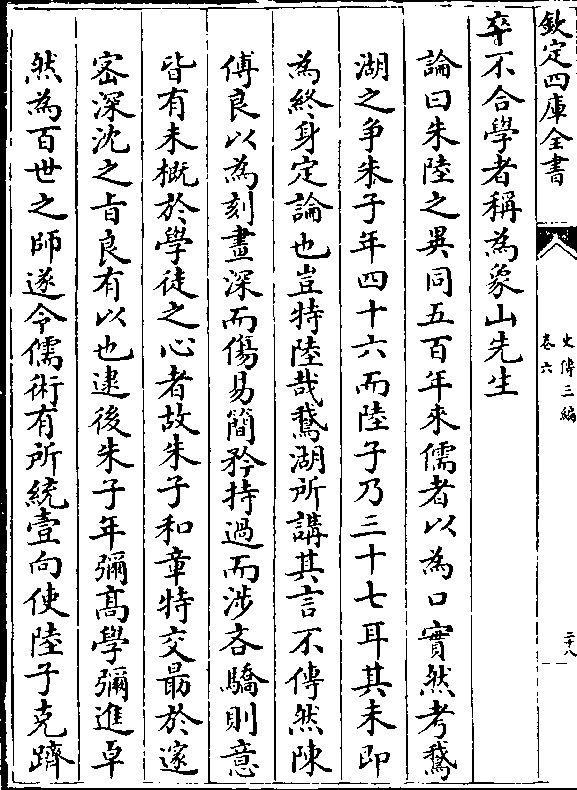 欽定四庫全書
史傳三編
卷六
二十八
卒不合學者稱為象山先生
論曰朱陸之異同五百年來儒者以為口實然考鵞
湖之爭朱子年四十六而陸子乃三十七耳其未即
為終身定論也豈特陸哉鵞湖所講其言不傳然陳
傅良以為刻畫深而傷易簡矜持過而涉吝驕則意
皆有未概於學徒之心者故朱子和章特交勗於邃
宻深沈之旨良有以也逮後朱子年彌髙學彌進卓
然為百世之師遂令儒術有所統壹向使陸子克躋